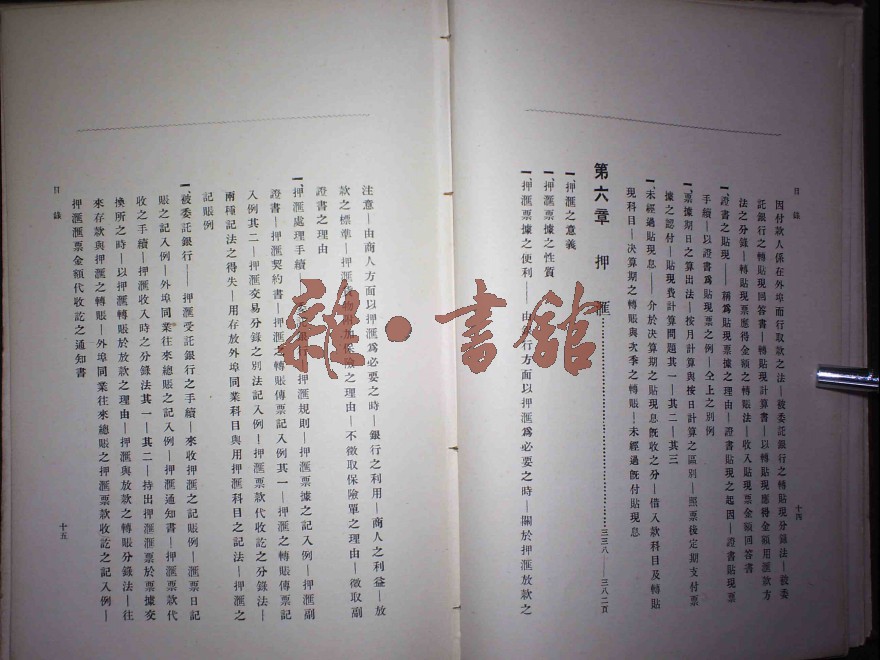 目錄
十四
因付款人係在外埠而行取款之法—被委託銀行之轉貼現分錄法—被委
託銀行之轉貼現回答書—轉貼現計算書—以轉貼現應得金額用匯款方
法之分錄—轉貼現票應得金額之轉賬法—收入貼現票金額回答書
一、證書之貼現—稱爲貼現票據之理由—證書貼現之起因—證書貼現票
手續—以證書爲貼現票之例—仝上之別例
一、票據期日之算出法—按月計算與按日計算之區別—照票後定期支付票
據之認付—貼現費計算問題其一—其二—其三
一、未經過貼現息—介於決算期之貼現息旣收之分—借入款科目及轉貼
現科目—決算期之轉賬與次季之轉賬—未經過旣付貼現息
第六章 押匯 三三八—三八二頁
一、押匯之意義
一、押匯票據之性質
一、押匯票據之便利—由 行方面以押匯爲必要之時—關於押匯放款之
注意—由商人方面以押匯爲必要之時—銀行之利用—商人之利益—放
款之標準—押匯 附加保險之理由—不徵取保險單之理由—徵取副
證書之理由
一、押匯處理手續— 銀行 押匯規則—押匯票據之記入例—押匯副
證書—押匯契約書—押匯之轉賬傳票記入例其一—押匯之轉賬傳票記
入例其二—押匯交易分錄之別法記入例—押匯票款代收訖之分錄法—
兩種記法之得失—用存放外埠同業科目與用押匯科目之記法—押匯之
記賬例
一、被委託銀行—押匯受託銀行之手續—來收押匯之記賬例—匯票日記
賬之記入例—外埠同業往來總賬之記入例—押匯通知書—押匯票款代
收之手續—押匯收入時之分錄法其一—其二—持出押匯匯票於票據交
換所之時—以押匯轉賬於放款之理由—押匯與放款之轉賬分錄法—往
來存款與押匯之轉賬—外埠同業往來總賬之押匯票款收訖之記入例—
押匯匯票金額代收訖之通知書
目錄
十五
雜·書館